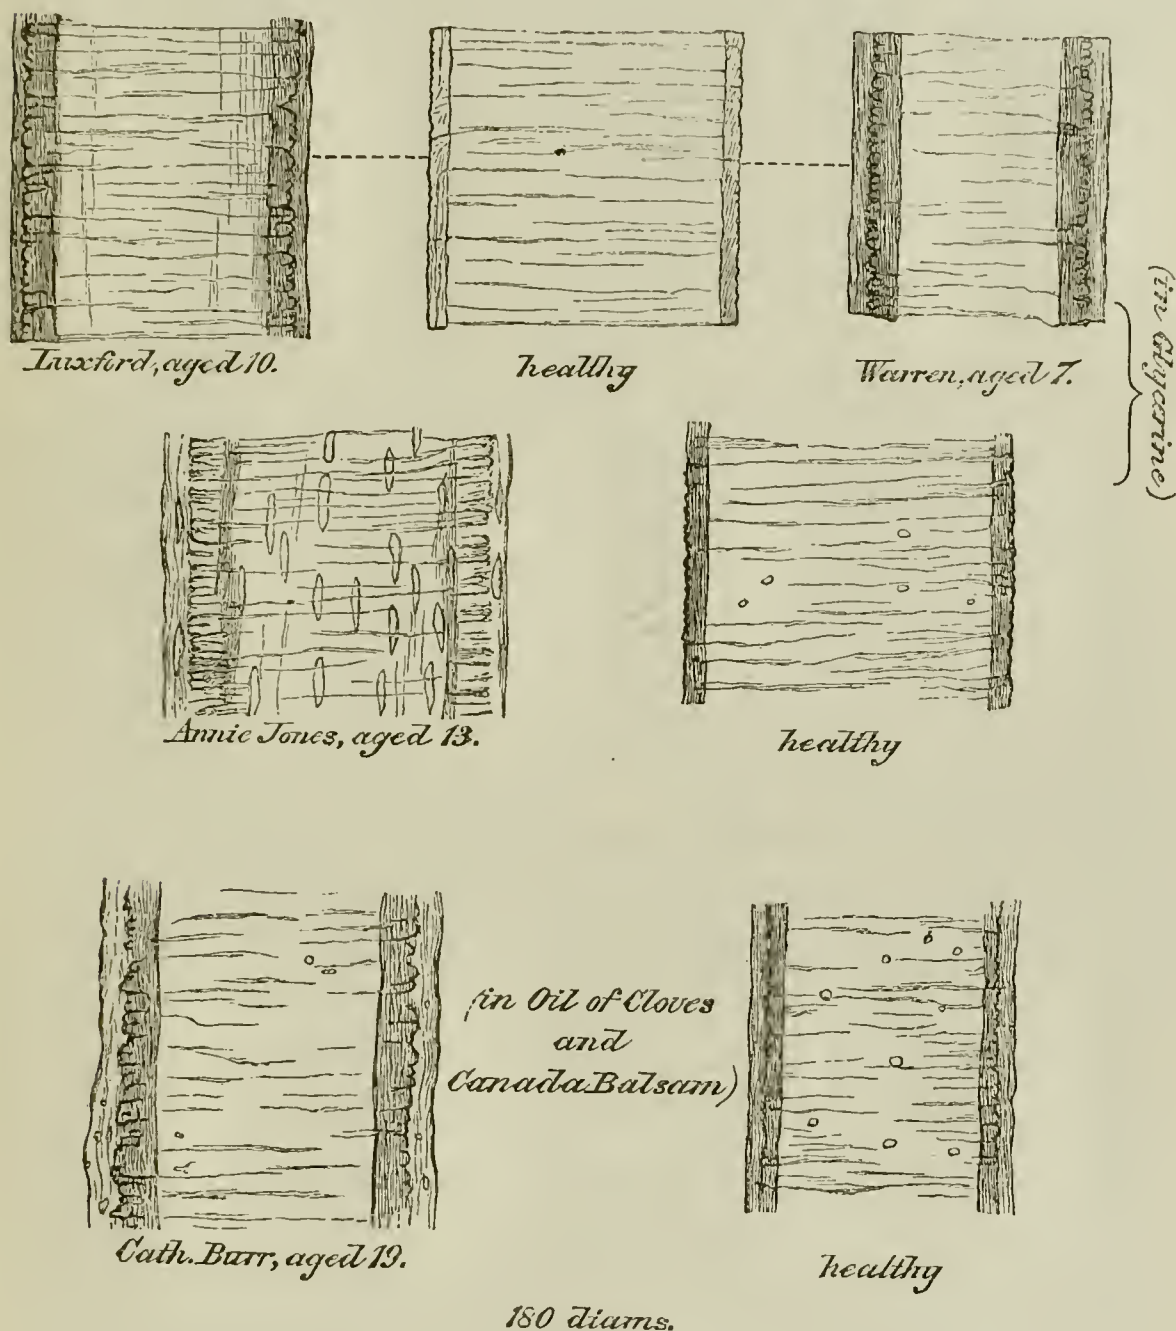 Luxford, aged 10.
healthy
Warren, aged 7.
(in Glycerine)
Annie Jones, aged 13.
healthy
(in Oil of Cloves
and
Canada Balsam)
Cath. Burr, aged 19.
healthy
180 diams.